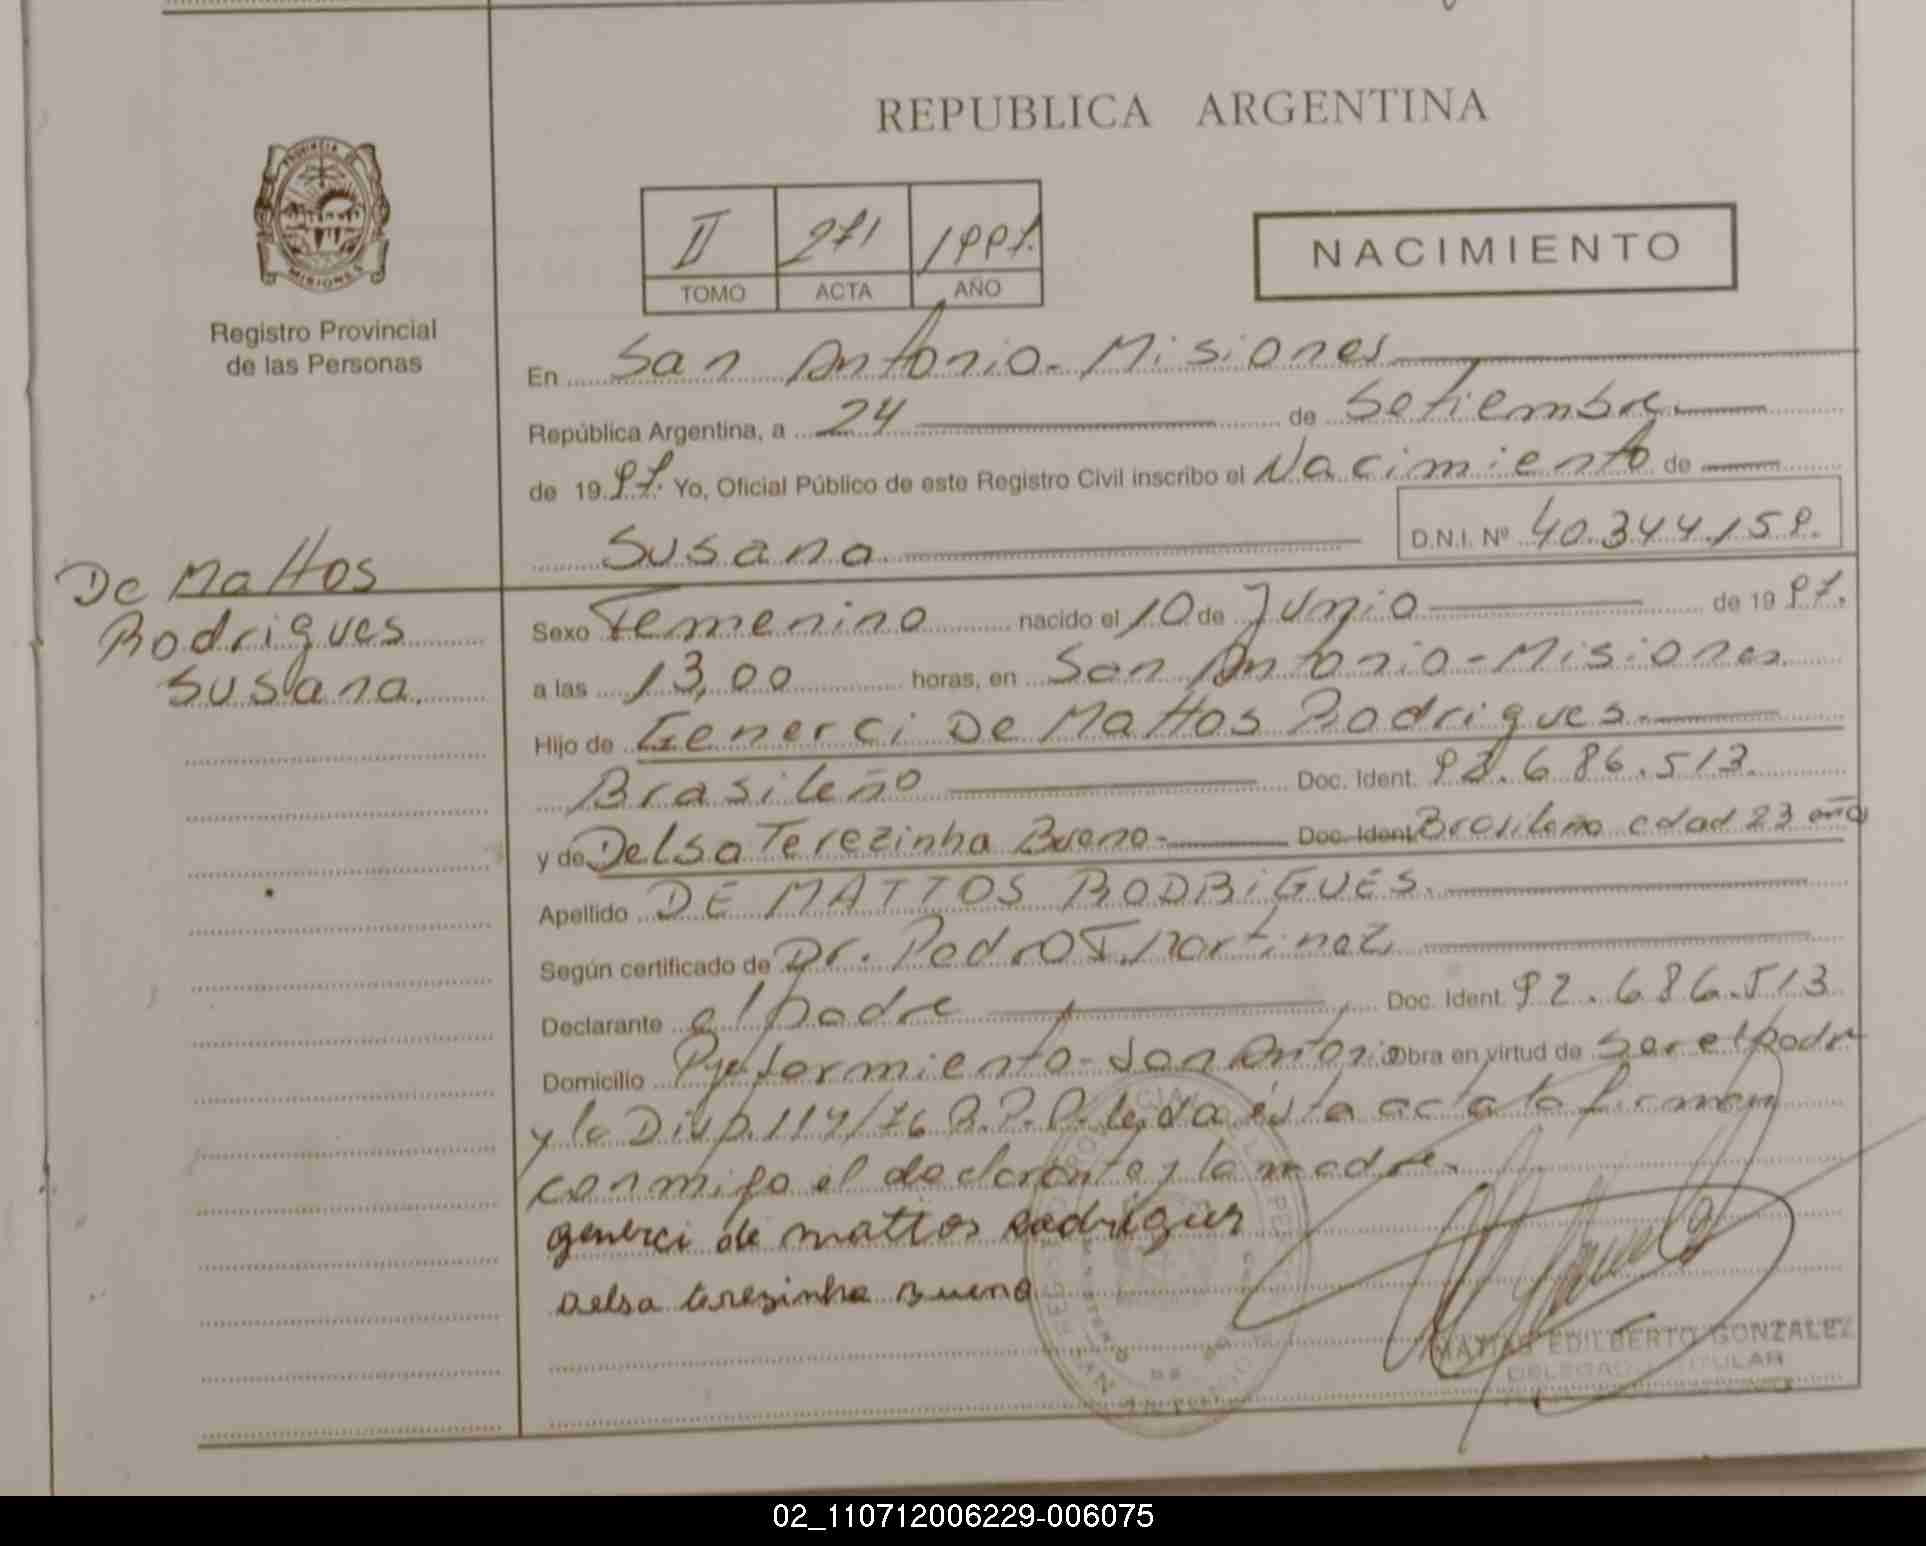 REPUBLICA ARGENTINA
PROVINCIA DE
MISIONES
Registro Provincial
de las Personas
II 271 1997.
TOMO ACTA AÑO
NACIMIENTO
En San Antonio - Misiones
República Argentina, a 24 de Setiembre
de 1997. Yo, Oficial Público de este Registro Civil inscribo el Nacimiento de
Susana D.N.I. Nº 40.344.159.
De Mattos
Rodrigues
Susana.
Sexo Femenino nacido el 10 de Junio de 1997.
a las 13,00 horas, en San Antonio - Misiones
Hijo de Generci De Mattos Rodrigues
Brasileño Doc. Ident. 92.686.513.
y de Delsa Terezinha Bueno - Doc. Ident. Brasileña edad 23 años
Apellido DE MATTOS RODRIGUES.
Según certificado de Dr. Pedro Martinez
Declarante el padre Doc. Ident. 92.686.513
Domicilio San Antonio Obra en virtud de ser el padre
y la Disp. 117/76 R.P.P. leida ésta acta la firman
conmigo el declarante y la madre.
generci de mattos rodrigues
delsa terezinha Bueno
MATIAS EDILBERTO GONZALEZ
DELEGADO TITULAR
02_110712006229-006075